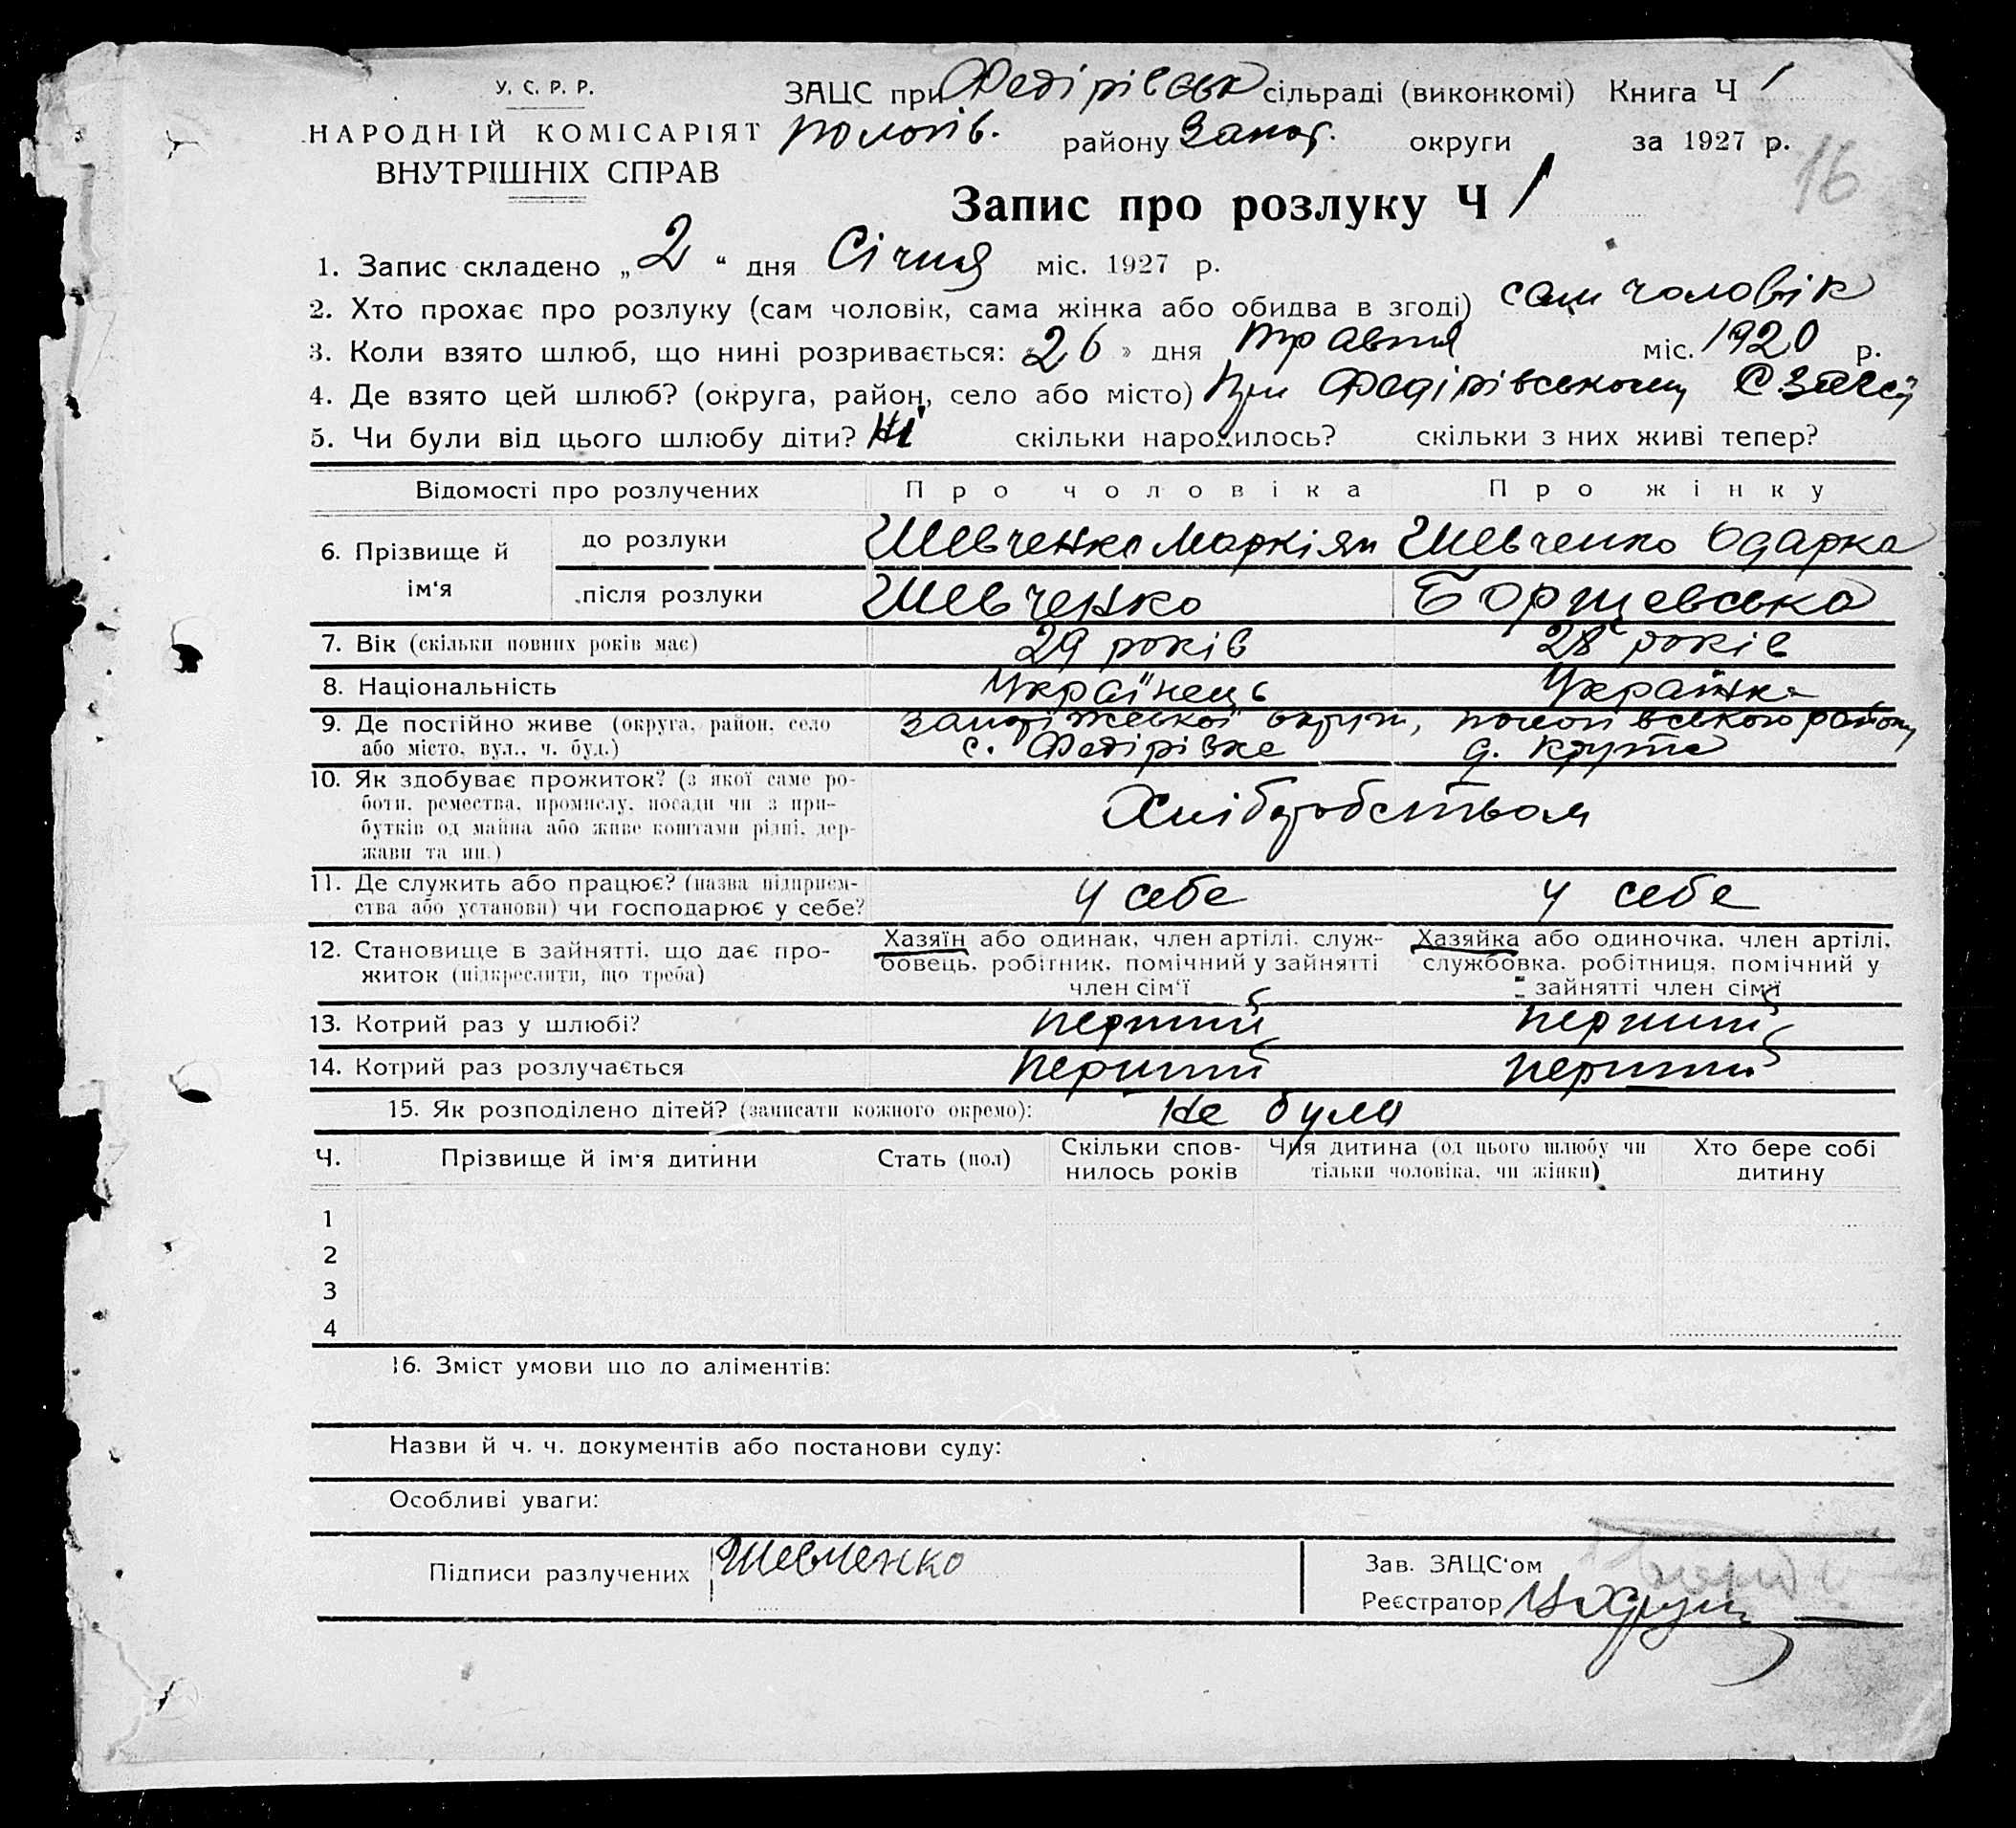 У. С. Р. Р.
НАРОДНІЙ КОМІСАРІЯТ
ВНУТРІШНІХ СПРАВ
ЗАЦС при Федірівськ сільраді (виконкомі) Книга Ч 1
Пологів. району Запор. округи за 1927 р.
16
Запис про розлуку Ч 1
1. Запис складено „2“ дня Січня міс. 1927 р.
2. Хто прохає про розлуку (сам чоловік, сама жінка або обидва в згоді) сам чоловік
3. Коли взято шлюб, що нині розривається: „26» дня травня міс. 1920 р.
4. Де взято цей шлюб? (округа, район, село або місто) При Федірівському
5. Чи були від цього шлюбу діти? Ні скільки народилось? скільки з них живі тепер?
Відомості про розлучених Про чоловіка Про жінку
6. Прізвище й ім‘я до розлуки Шевченко Маркіян Шевченко Одарка
після розлуки Шевченко Борщевська
7. Вік (скільки повних років має) 29 років 28 років
8. Національність Українець Українка
9. Де постійно живе (округа, район, село Запоріжської округи, Пологівського району
або місто, вул., ч. буд.) с. Федірівке
10. Як здобуває прожиток? (з якої саме ро-
боти, ремества, промислу, посади чи з при-
бутків од майна або живе коштами рідні, дер-
жави та ин.) Хліборобством
11. Де служить або працює? (назва підприєм-
ства або установи) чи господарює у себе? у себе у себе
12. Становище в зайнятті, що дає про-
житок (підкреслити, що треба)
Хазяїн або одинак, член артілі, служ-
бовець, робітник, помічний у зайнятті
член сім‘ї
Хазяйка або одиночка, член артілі,
службовка, робітниця, помічний у
зайнятті член сім‘ї
13. Котрий раз у шлюбі? перший перший
14. Котрий раз розлучається перший перший
15. Як розподілено дітей? (записати кожного окремо): Не було
Ч. Прізвище й ім‘я дитини Стать (пол) Скільки спов-
нилось років Чия дитина (од цього шлюбу чи
тільки чоловіка, чи жінки) Хто бере собі
дитину
1
2
3
4
16. Зміст умови що до аліментів:
Назви й ч. ч. документів або постанови суду:
Особливі уваги:
Підписи разлучених Шевченко
Зав. ЗАЦС‘ом
Реєстратор